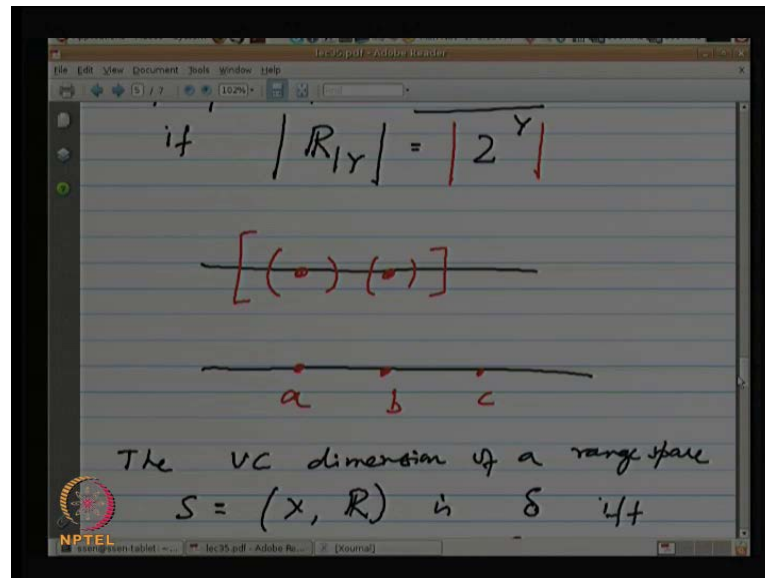 lec35.pdf - Adobe Reader
File Edit View Document Tools Window Help
5 / 7 102%
if | ℝ|Y | = | 2^Y |
[ ( ) ( ) ]
a b c
The VC dimension of a range space
S = (X, ℝ) is δ iff
NPTEL
ssen@ssen-tablet: ~... lec35.pdf - Adobe Re... [Xournal]